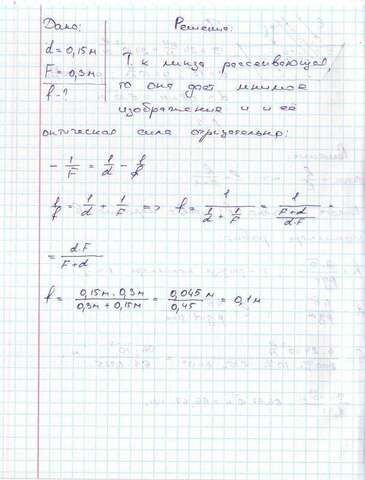 Дано:
Решение:
d = 0,15м
F = 0,3м
f - ?
Т к линза рассеивающая,
то она даёт мнимое
изображение и и её
оптическая сила отрицательна:
- 1/F = 1/d - 1/f
1/f = 1/d + 1/F => f = 1/(1/d + 1/F) = 1/((F+d)/(d.F)) =
= d.F/(F+d)
f = (0,15м . 0,3м)/(0,3м + 0,15м) = 0,045 м/0,45 = 0,1м